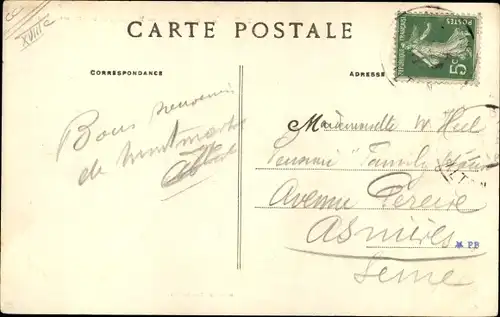 XVIIIe
CARTE POSTALE
CORRESPONDANCE
ADRESSE
POSTES
5c
Bons souvenirs
de Montmartre
Mademoiselle W. Heil
Pension "Family
Avenue Pereire
Asnières
PB
Seine